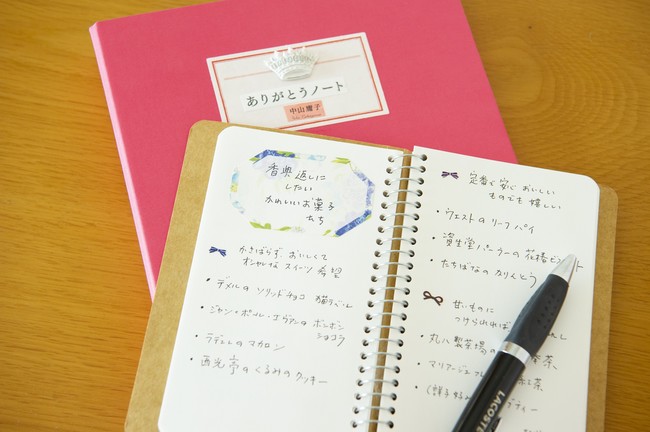 ありがとうノート
中山庸子
香典返しに
したい
かわいいお菓子
たち
かさばらず、おいしくて
オシャレな スイーツ 希望
・デメルの ソリッドチョコ 猫ラベル
・ジャン・ポール・エヴァンの ボンボン
ショコラ
・ラデュレのマカロン
・西光亭のくるみのクッキー
定番で安心 おいしい
ものでも嬉しい
・ウエストの リーフパイ
・資生堂パーラーの 花椿ビ
ト
・たちばなの かりんとう
甘いものに
つけられれば
・丸八製茶場の
茶
・マリアージュ
茶
LACOSTE